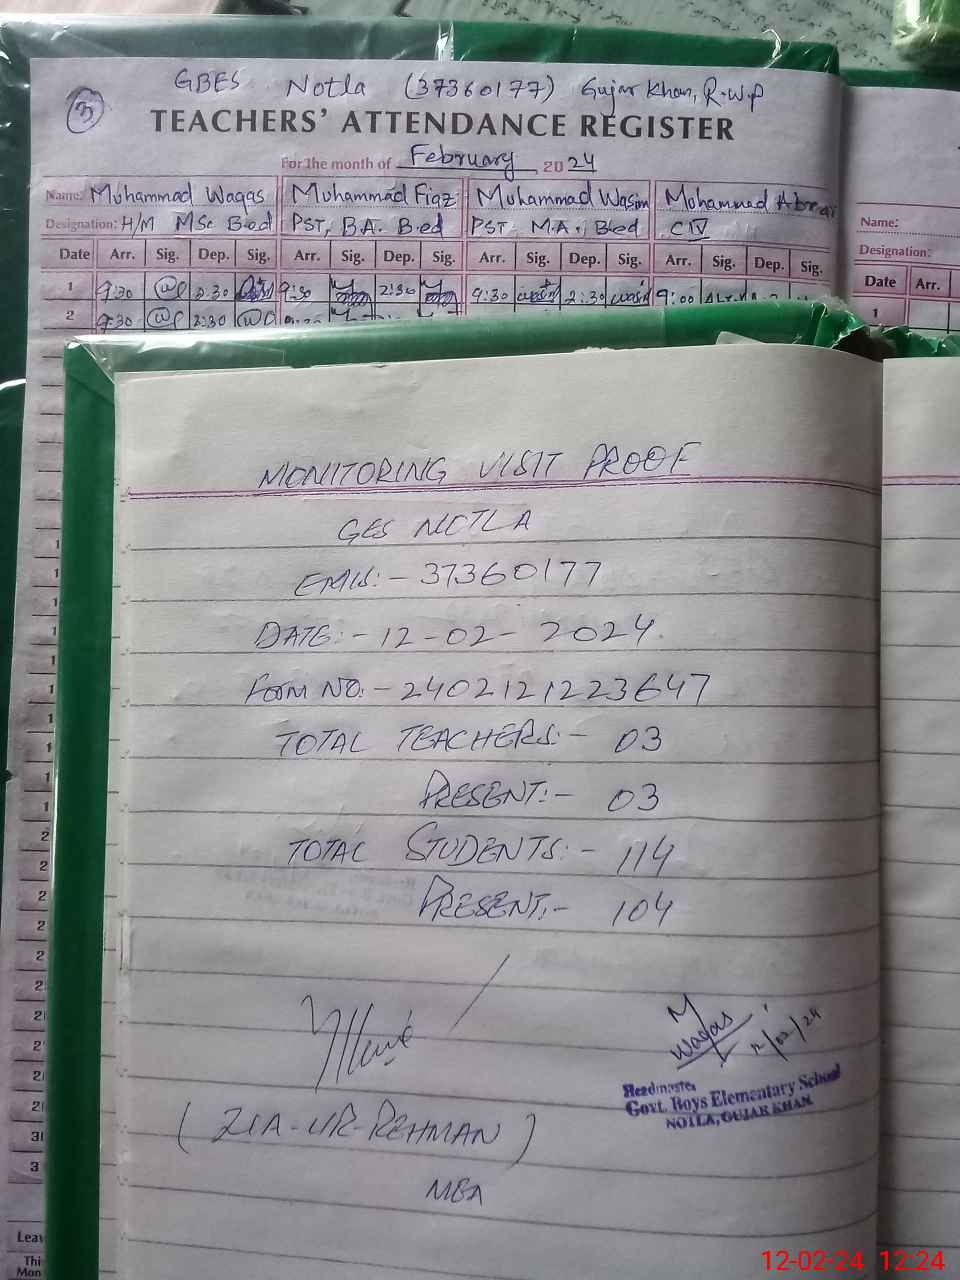 GBES Notla (37360177) Gujar Khan, R.W.P
3
TEACHERS' ATTENDANCE REGISTER
For the month of February 2024
Name: Muhammad Waqas Muhammad Fiaz Muhammad Wasim Mohammad
Designation: H/M MSc B.ed PST, B.A. B.ed PST M.A., B.ed C IV
Date Arr. Sig. Dep. Sig. Arr. Sig. Dep. Sig. Arr. Sig. Dep. Sig. Arr. Sig. Dep. Sig.
1 9:30 2:30 9:30 2:30 9:30 wasim 2:30 wasim 9:00
2 9:30 2:30
Name:
Designation:
Date Arr.
1
MONITORING VISIT PROOF
GES NOTLA
EMIS:- 37360177
DATE:- 12-02-2024.
FORM NO:- 24021212223647
TOTAL TEACHERS:- 03
PRESENT:- 03
TOTAL STUDENTS:- 114
PRESENT:- 104
M Waqas
12/02/24
Headmaster
Govt. Boys Elementary School
NOTLA, GUJAR KHAN
(ZIA-UR-REHMAN)
MEA
12-02-24 12:24